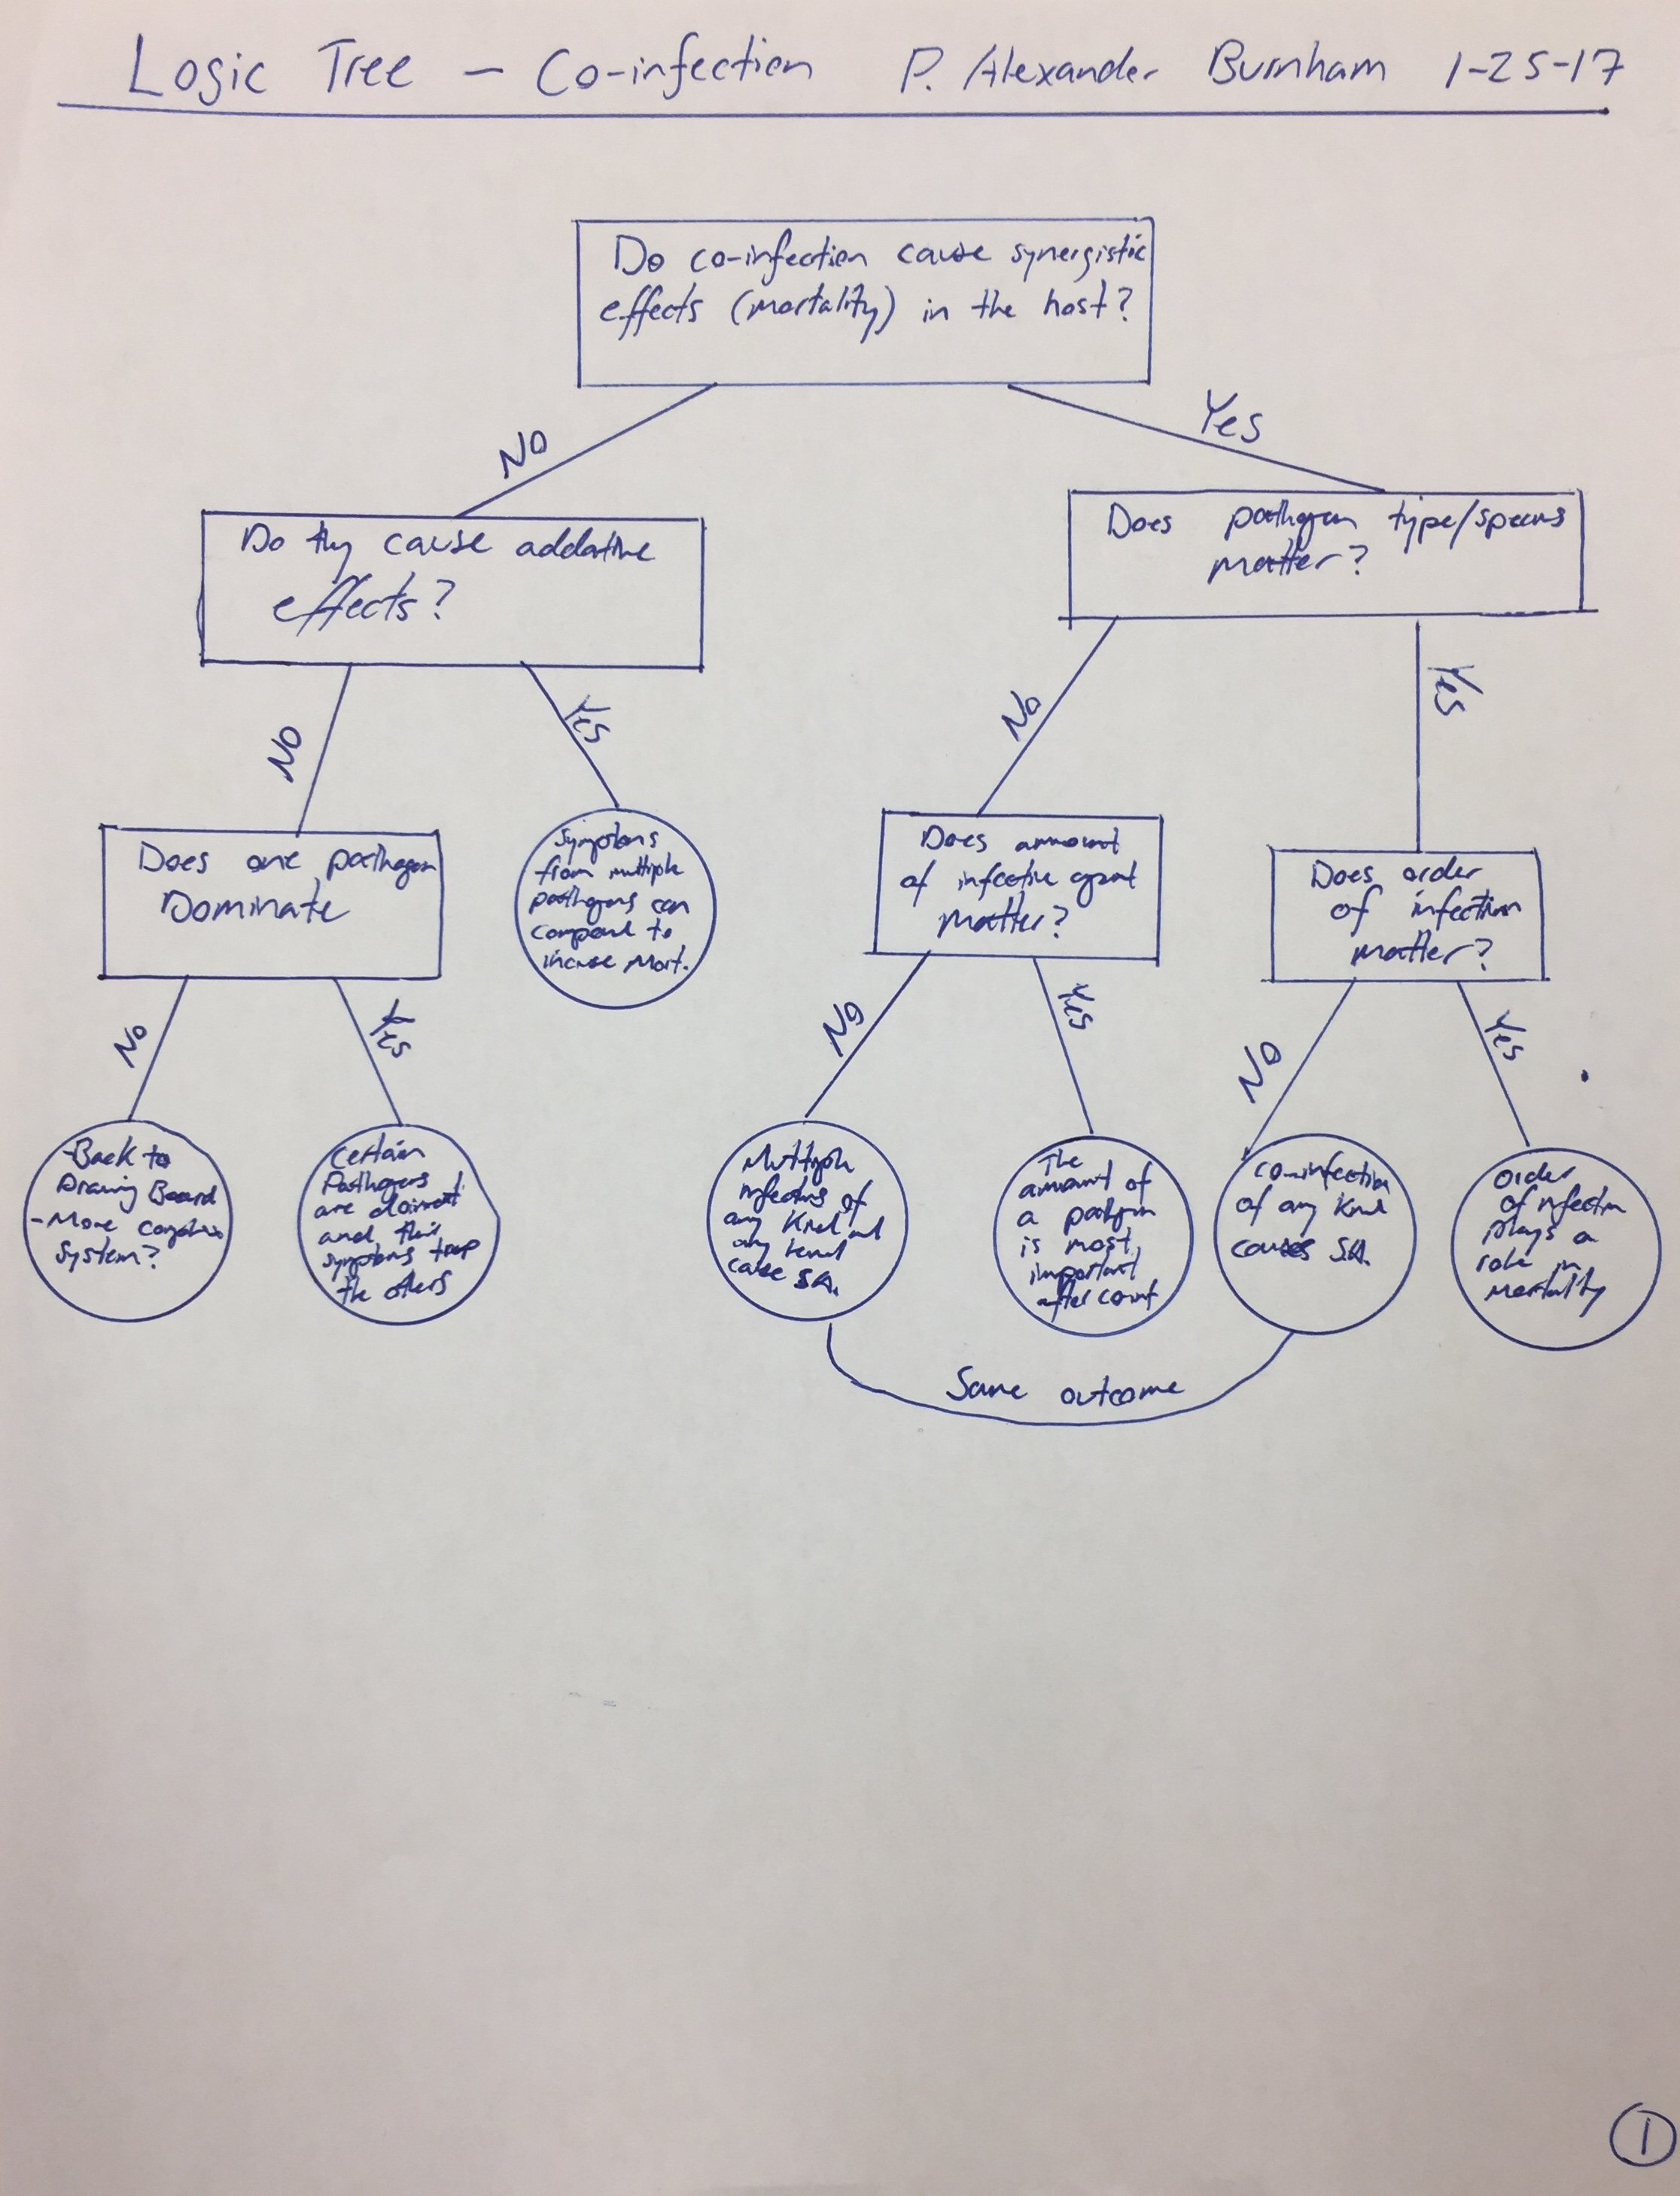 Logic Tree - Co-infection P. Alexander Burnham 1-25-17
Do co-infection cause synergistic
effects (mortality) in the host?
NO
Yes
Do thy cause addative
effects?
Does pathogen type/species
matter?
NO
Yes
No
Yes
Does one pathogen
Dominate
Symptoms
from multiple
pathogens can
compound to
increase Mort.
Does ammount
of infective agent
Matter?
Does order
of infection
matter?
No
Yes
No
Yes
NO
Yes
-Back to
Drawing Board
-More complex
System?
Certain
Pathogens
are
and their
symptoms trump
the others
Multiple
infections of
any Kind and
any
cause SA.
The
amount of
a pathogen
is most
important
after count
co-infection
of any Kind
causes SA.
order
of infection
plays a
role in
mortality
Same outcome
1